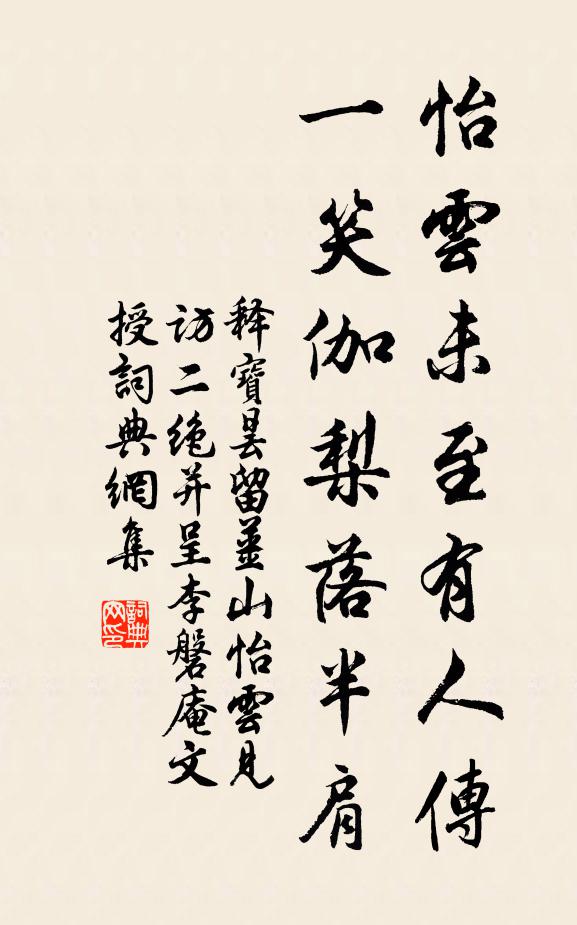 怡雲未至有人傳
一笑伽梨落半肩
释寶曇留薑山怡雲見
訪二绝并呈李磐庵文
授詞典網集
詞典网印